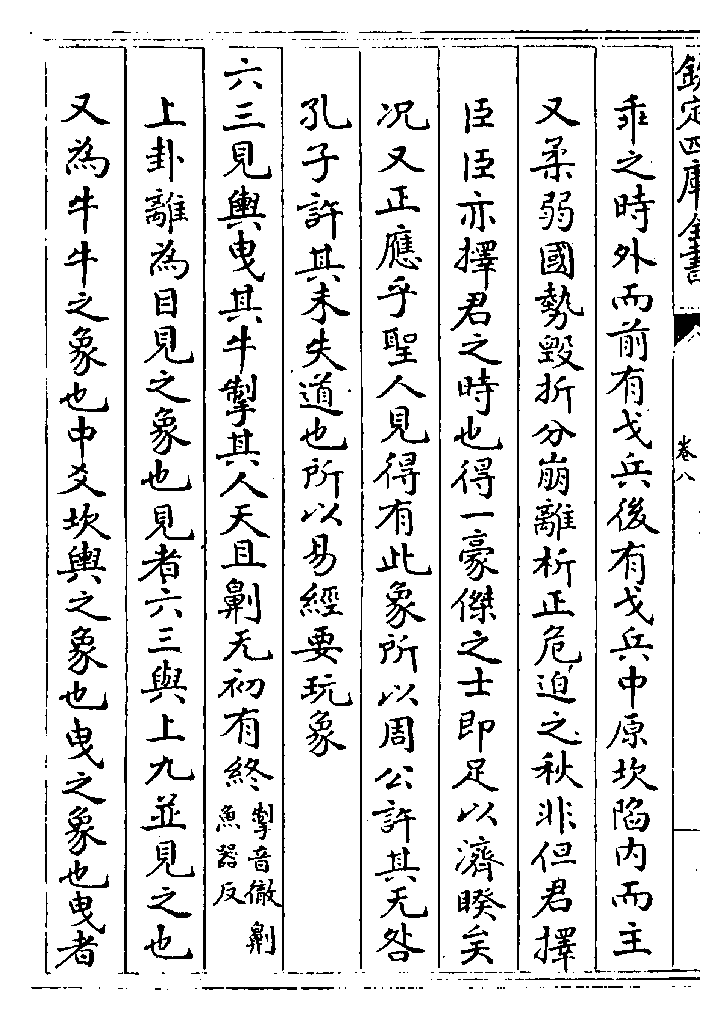 欽定四庫全書
卷八
乖之時外而前有戈兵後有戈兵中原坎陷内而主
又柔弱國勢毀折分崩離析正危迫之秋非但君擇
臣臣亦擇君之時也得一豪傑之士即足以濟睽矣
况又正應乎聖人見得有此象所以周公許其无咎
孔子許其未失道也所以易經要玩象
六三見輿曳其牛掣其人天且劓无初有終掣音徹劓
魚器反
上卦離為目見之象也見者六三與上九並見之也
又為牛牛之象也中爻坎輿之象也曳之象也曳者